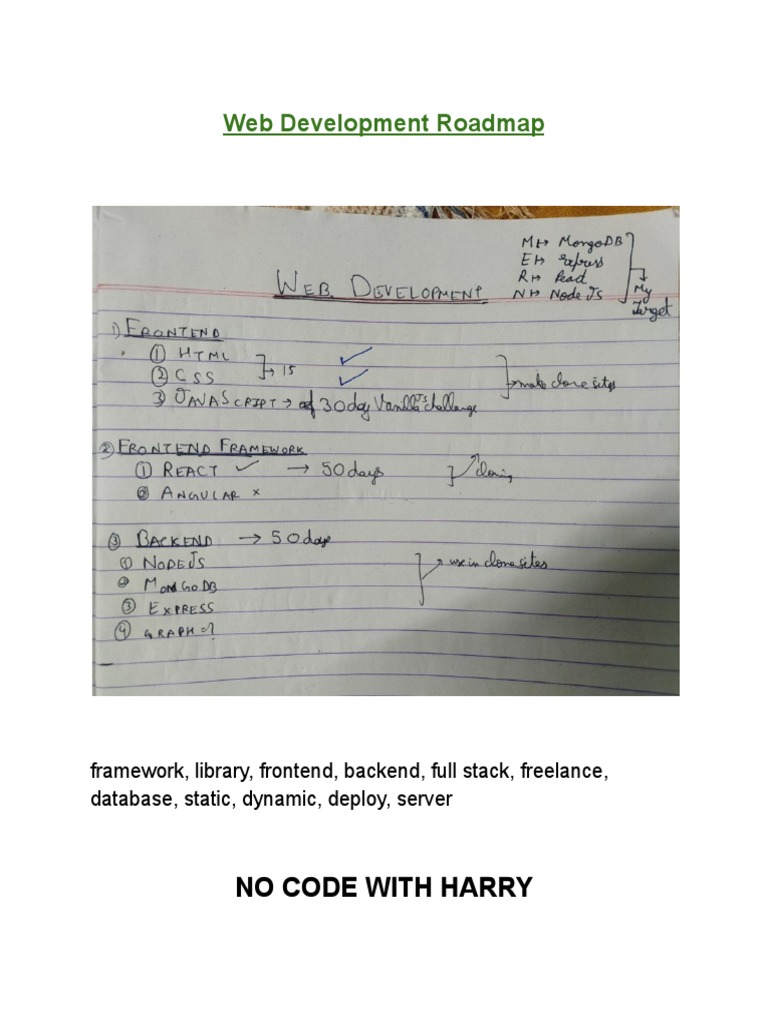 Web Development Roadmap
M↦ MongoDB
E↦ express
R↦ React
N↦ Node Js
→ My Target
WEB DEVELOPMENT
1) FRONTEND
① HTML
② CSS
→ 15
3) JAVASCRIPT → 30 day Vanilla JS challenge
→ make clone sites
② FRONTEND FRAMEWORK
① REACT ✓ → 50 days
② ANGULAR ×
cloning
③ BACKEND → 50 days
① NODEJS
② MONGODB
③ EXPRESS
④ GRAPH =?
→ use in clone sites
framework, library, frontend, backend, full stack, freelance,
database, static, dynamic, deploy, server
NO CODE WITH HARRY